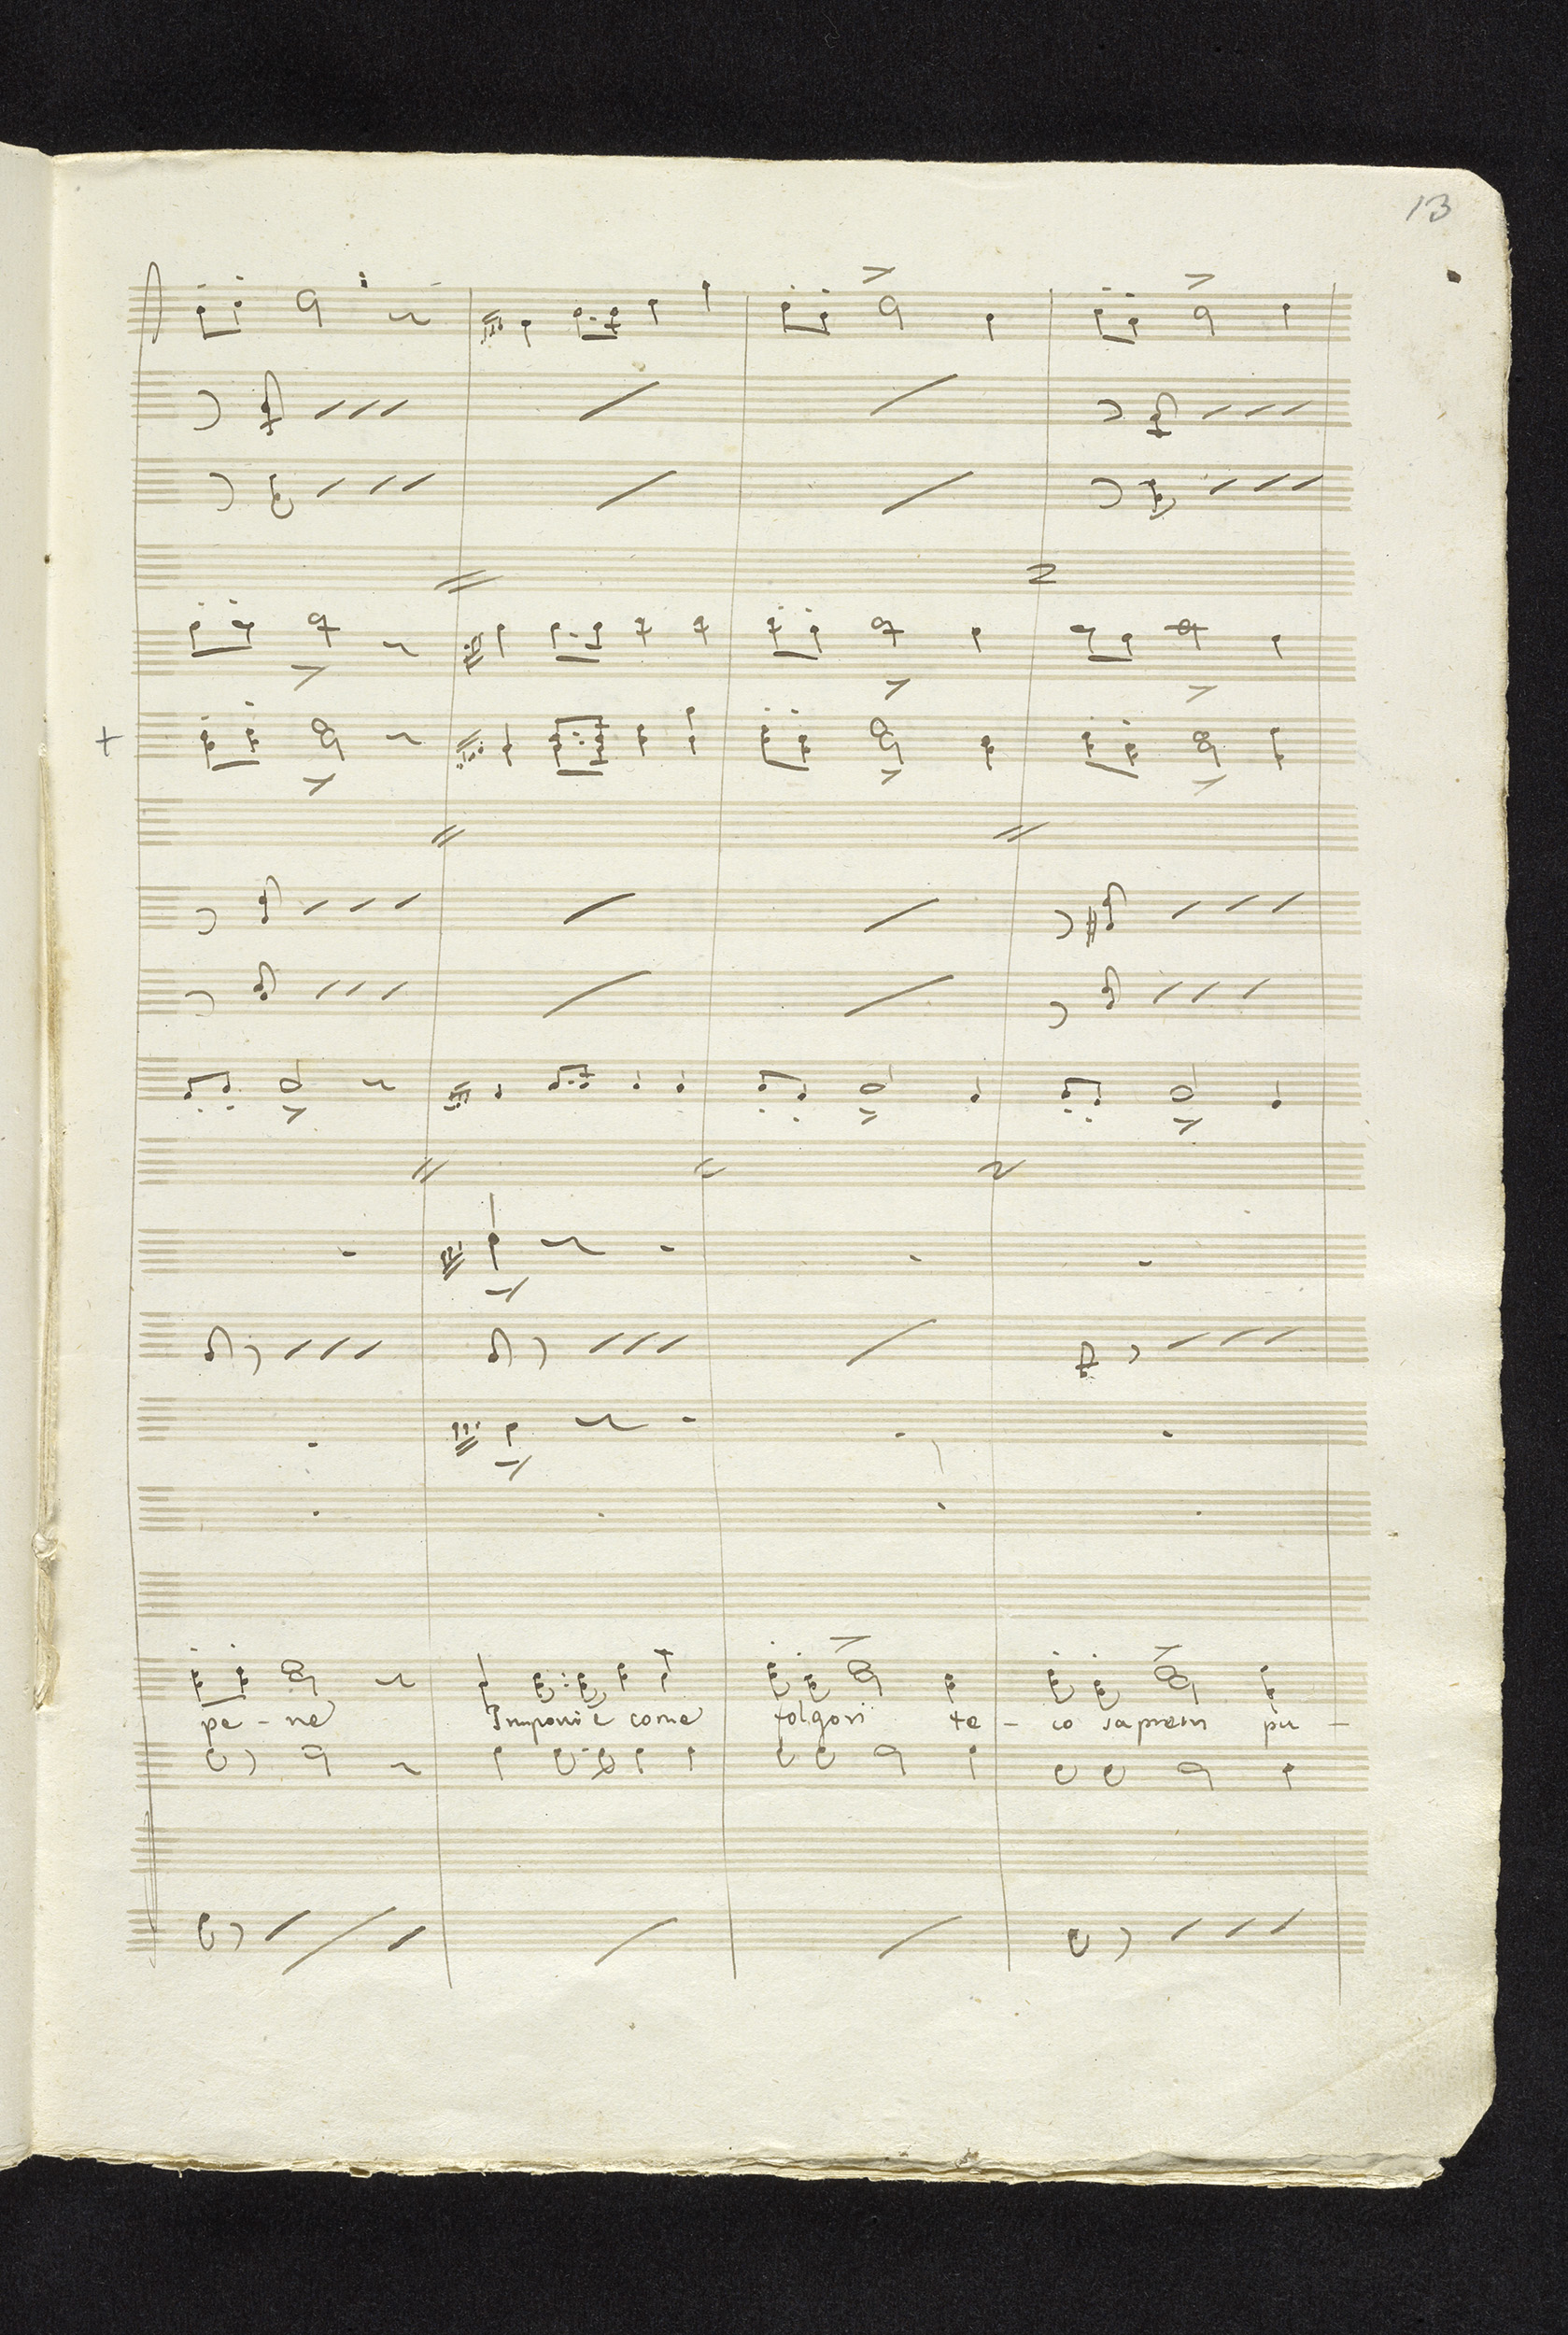 13
pe - ne Imponi e come folgori te - co saprem pu -